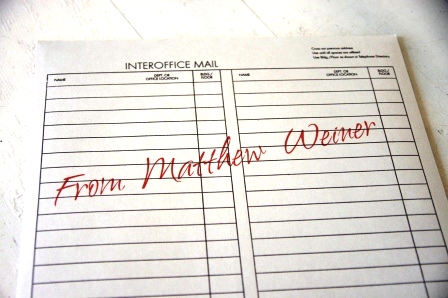 INTEROFFICE MAIL
Cross out previous address
Use until all spaces are utilized
Use Bldg./Floor as shown in Telephone Directory
NAME DEPT. OR OFFICE LOCATION BLDG./ FLOOR NAME DEPT. OR OFFICE LOCATION BLDG./ FLOOR
From Matthew Weiner